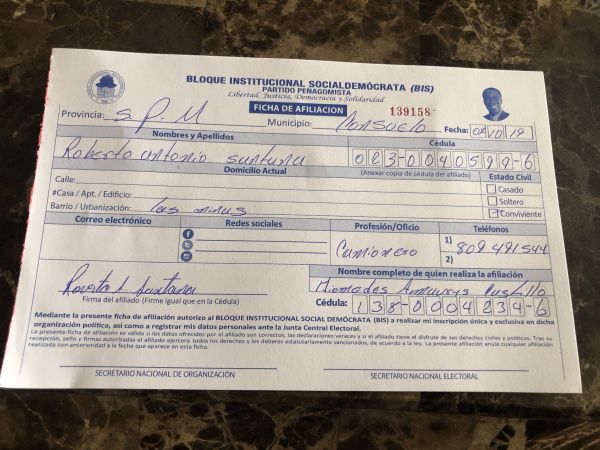 BLOQUE INSTITUCIONAL SOCIALDEMÓCRATA (BIS)
PARTIDO PEÑAGOMISTA
Libertad, Justicia, Democracia y Solidaridad
FICHA DE AFILIACIÓN 139158
Provincia: S. P. M Municipio: Consuelo Fecha:
Nombres y Apellidos Cédula
Roberto antonio suntunu 023-0040599-6
Domicilio Actual (Anexar copia de cédula del afiliado) Estado Civil
Calle: Casado
#Casa / Apt. / Edificio: Soltero
Barrio / Urbanización: las minus Conviviente
Correo electrónico Redes sociales Profesión/Oficio Teléfonos
Camionero 1) 809 491 544
2)
Nombre completo de quien realiza la afiliación
Roberto A Santana
Firma del afiliado (Firme igual que en la Cédula) Cédula: 138-0004234-6
Mediante la presente ficha de afiliación autorizo al BLOQUE INSTITUCIONAL SOCIAL DEMÓCRATA (BIS) a realizar mi inscripción única y exclusiva en dicha
organización política, así como a registrar mis datos personales ante la Junta Central Electoral.
La presente ficha de afiliación es válida si los datos ofrecidos por el afiliado son correctos, las declaraciones veraces y si el afiliado tiene el disfrute de sus derechos civiles y políticos. Tras su
recepción, sello y firmas autorizadas el afiliado ejercerá todos los derechos y los deberes estatutariamente sancionados, de acuerdo a la ley. La presente afiliación anula cualquier afiliación
realizada con anterioridad a la fecha que aparece en esta ficha.
SECRETARIO NACIONAL DE ORGANIZACIÓN SECRETARIO NACIONAL ELECTORAL